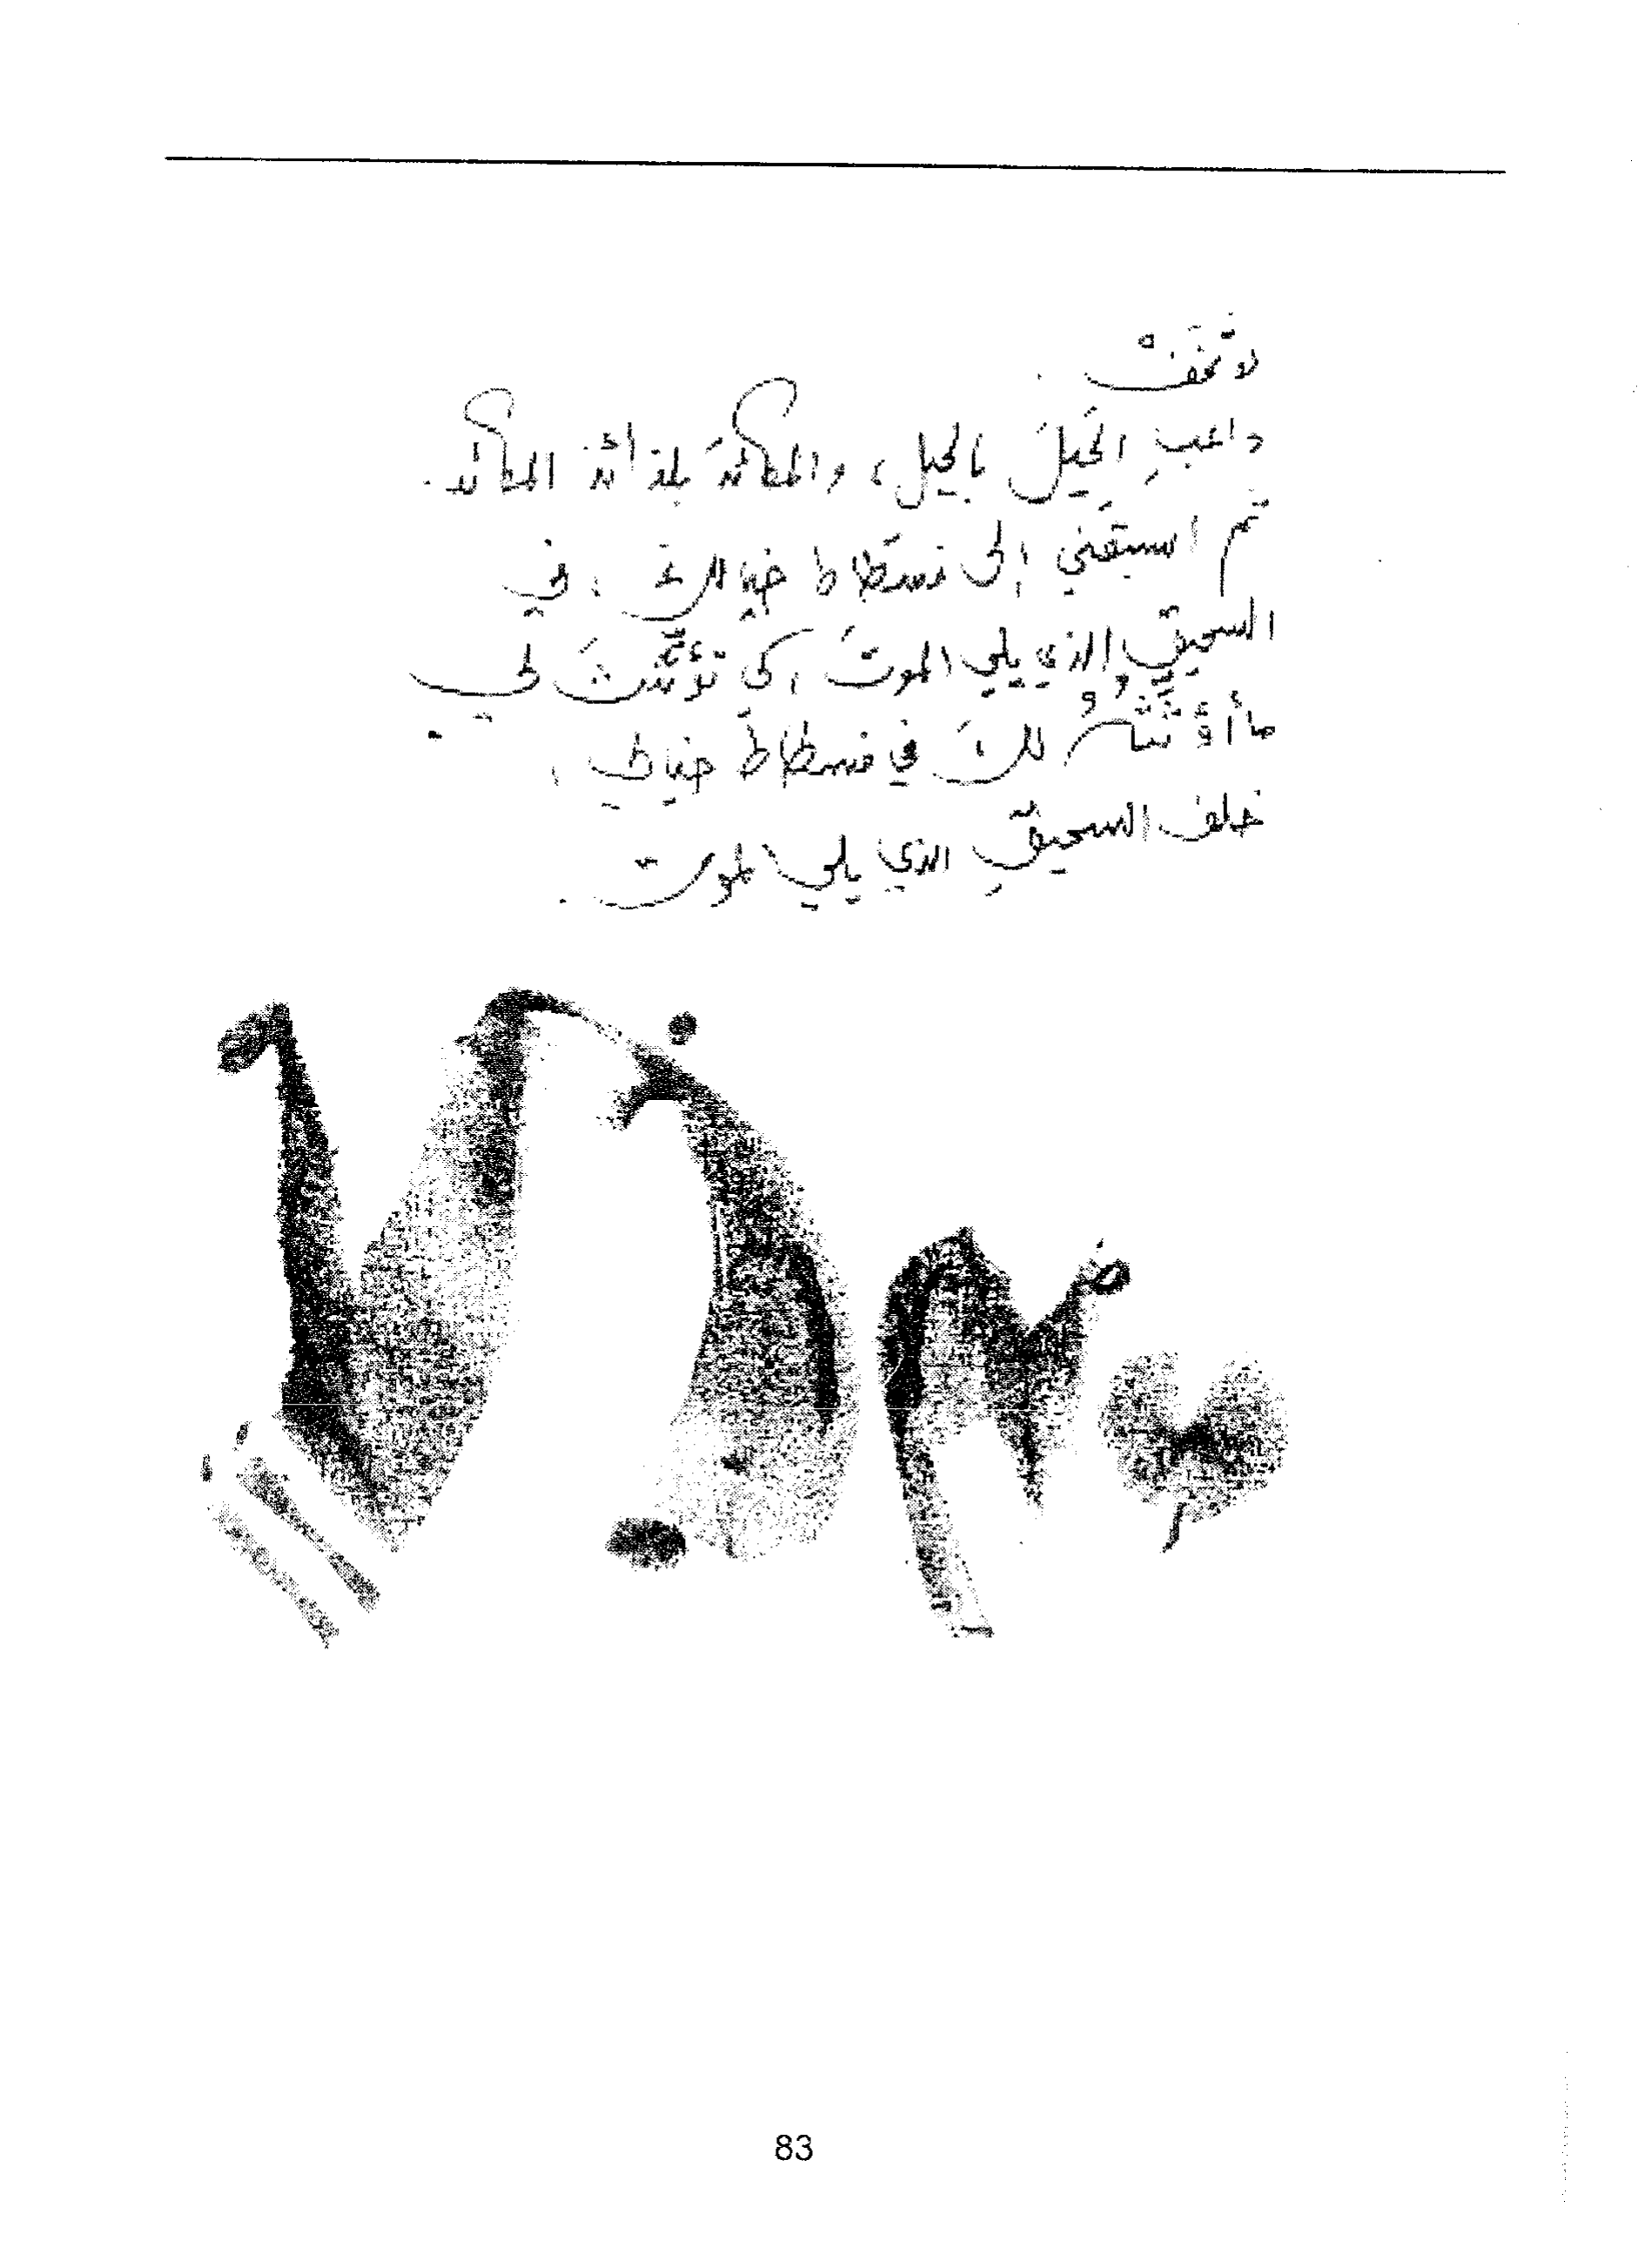 لا تَخَفْ.
داعبِ الحِيَلَ بالحِيَل، والمكائدَ بلذائذ المكائد.
ثم اسبِقَني إلى فسطاط خيالك، في
السحيقِ الذي يلي الموتَ، كي تؤثِّثَ لي
ما أؤثِّثُهُ لكَ في فسطاطِ خيالي،
خلف السحيقِ الذي يلي الموت.
83